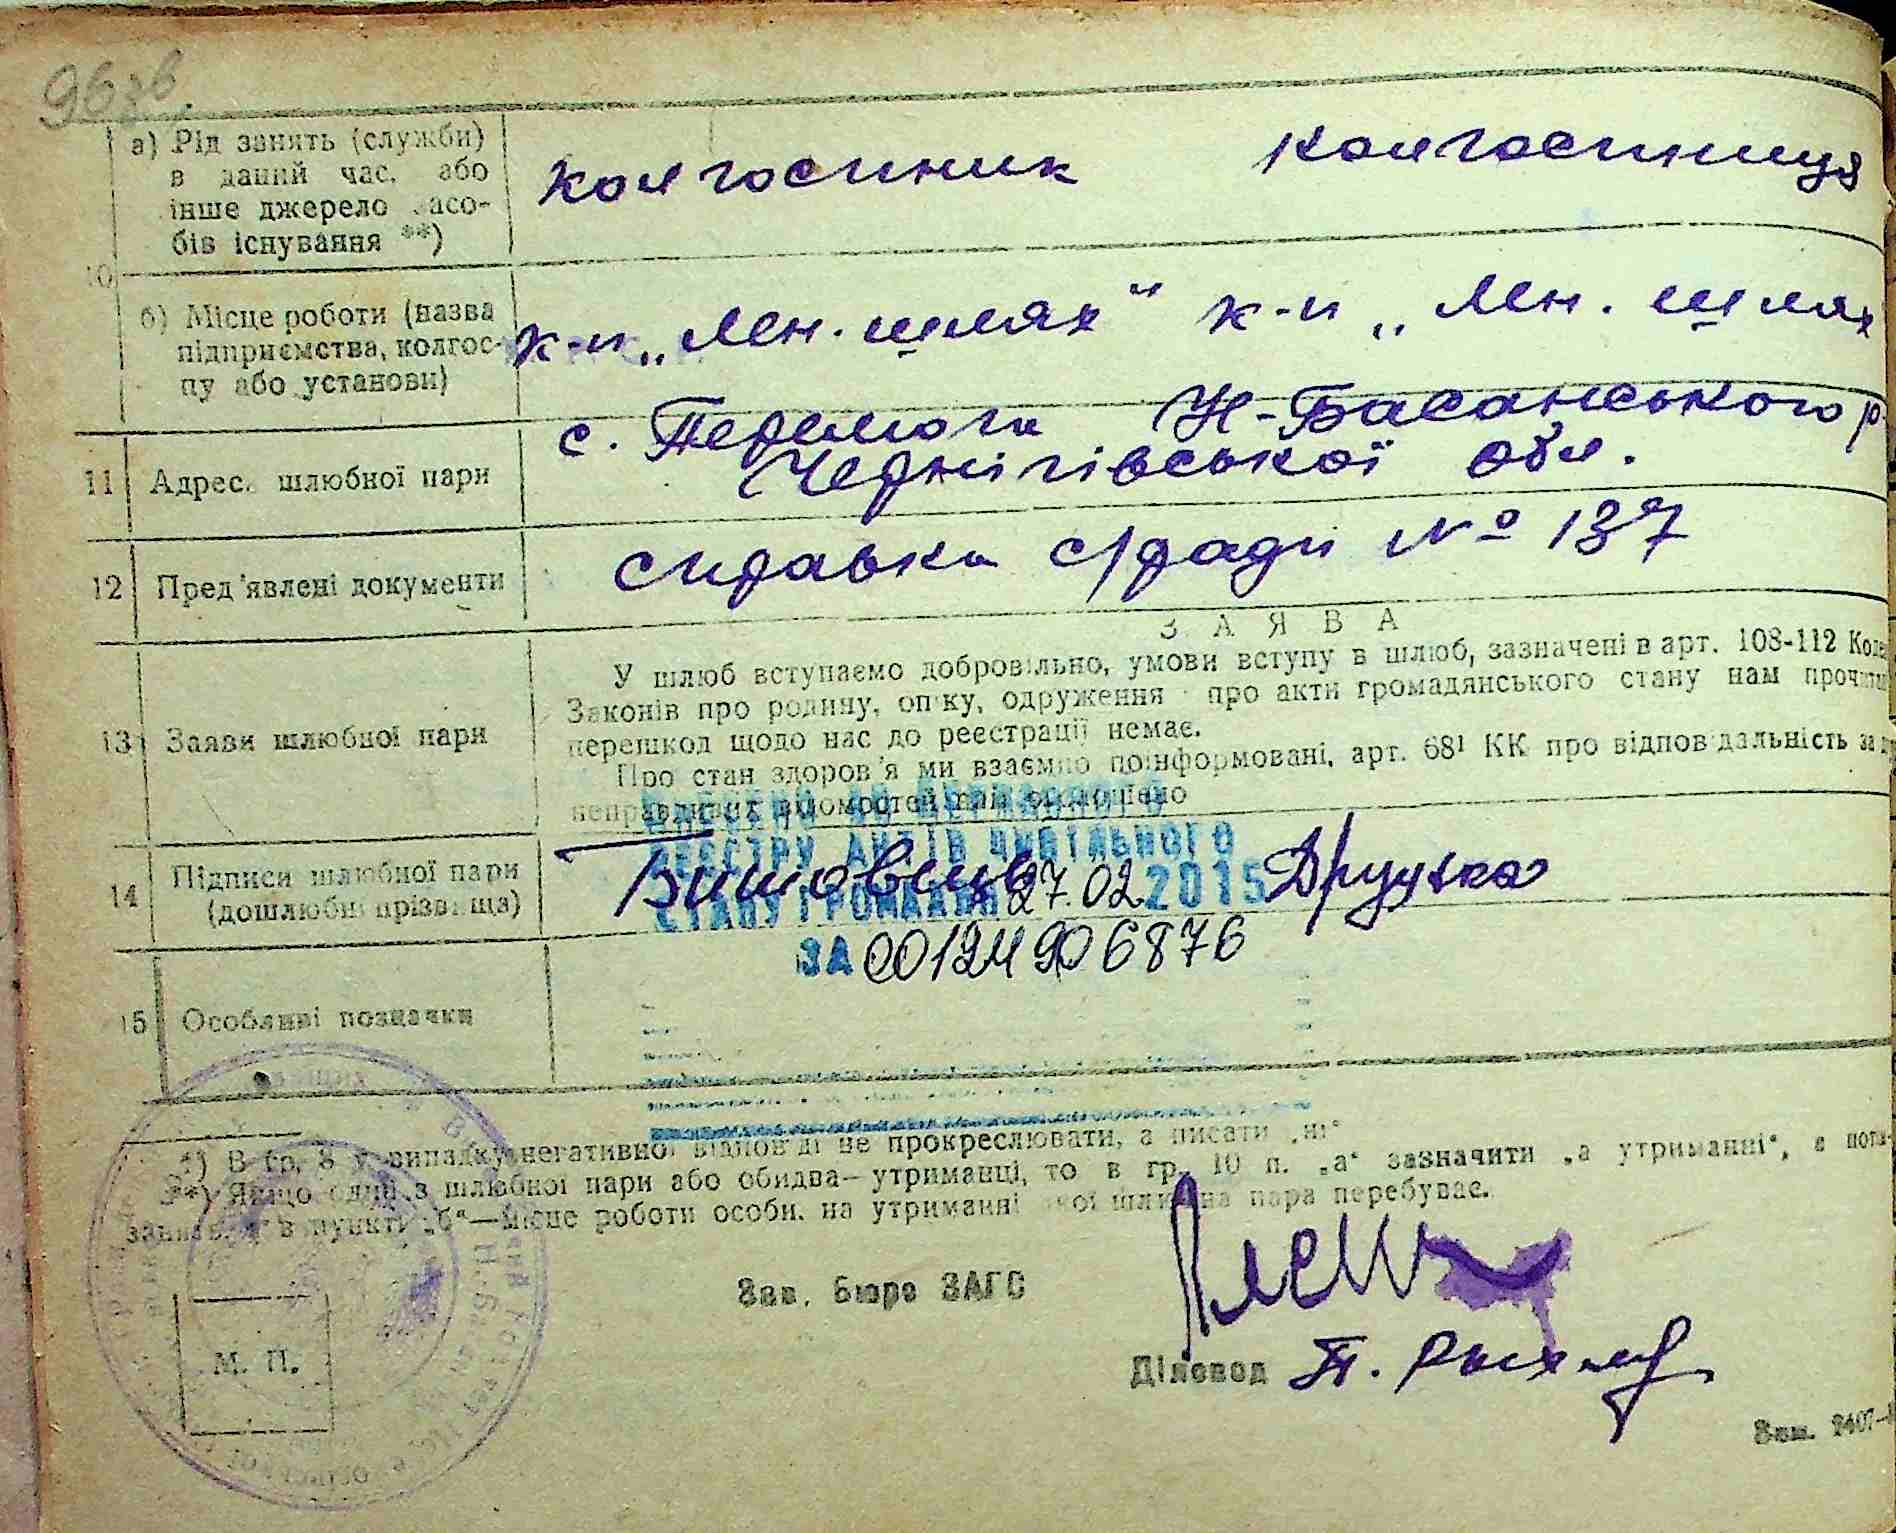 96зв
а) Рід занять (служби)
в даний час, або
інше джерело засо-
бів існування **)
колгоспник колгоспниця
10
б) Місце роботи (назва
підприємства, колгос-
пу або установи)
к-п „Лен. шлях“ к-п „Лен. шлях
11 Адрес. шлюбної пари
с. Перемога Н-Басанського р-
Чернігівської обл.
12 Пред'явлені документи
справка с/ради № 137
ЗАЯВА
13 Заяви шлюбної пари
У шлюб вступаємо добровільно, умови вступу в шлюб, зазначені в арт. 108-112 Коде
Законів про родину, опіку, одруження про акти громадянського стану нам прочитан
перешкод щодо нас до реєстрації немає.
Про стан здоров'я ми взаємно поінформовані, арт. 68¹ КК про відповідальність за
неправдивих відомостей нам оголошено
ВНЕСЕНО ДО ДЕРЖАВНОГО
РЕЄСТРУ АКТІВ ЦИВІЛЬНОГО
СТАНУ ГРОМАДЯН 27.02.2015
ЗА 00124906876
14 Підписи шлюбної пари
(дошлюбні прізвища)
Друцька
15 Особливі позначки
*) В гр. 8 у випадку негативної відповіді не прокреслювати, а писати „ні“
**) Якщо один з шлюбної пари або обидва—утриманці, то в гр. 10 п. „а“ зазначити „а утриманні“, а пота-
занням в пункті „б“—місце роботи особи, на утриманні якої шлюбна пара перебуває.
Зав. Бюро ЗАГС
Діловод П.
М. П.
Зам. 2407-